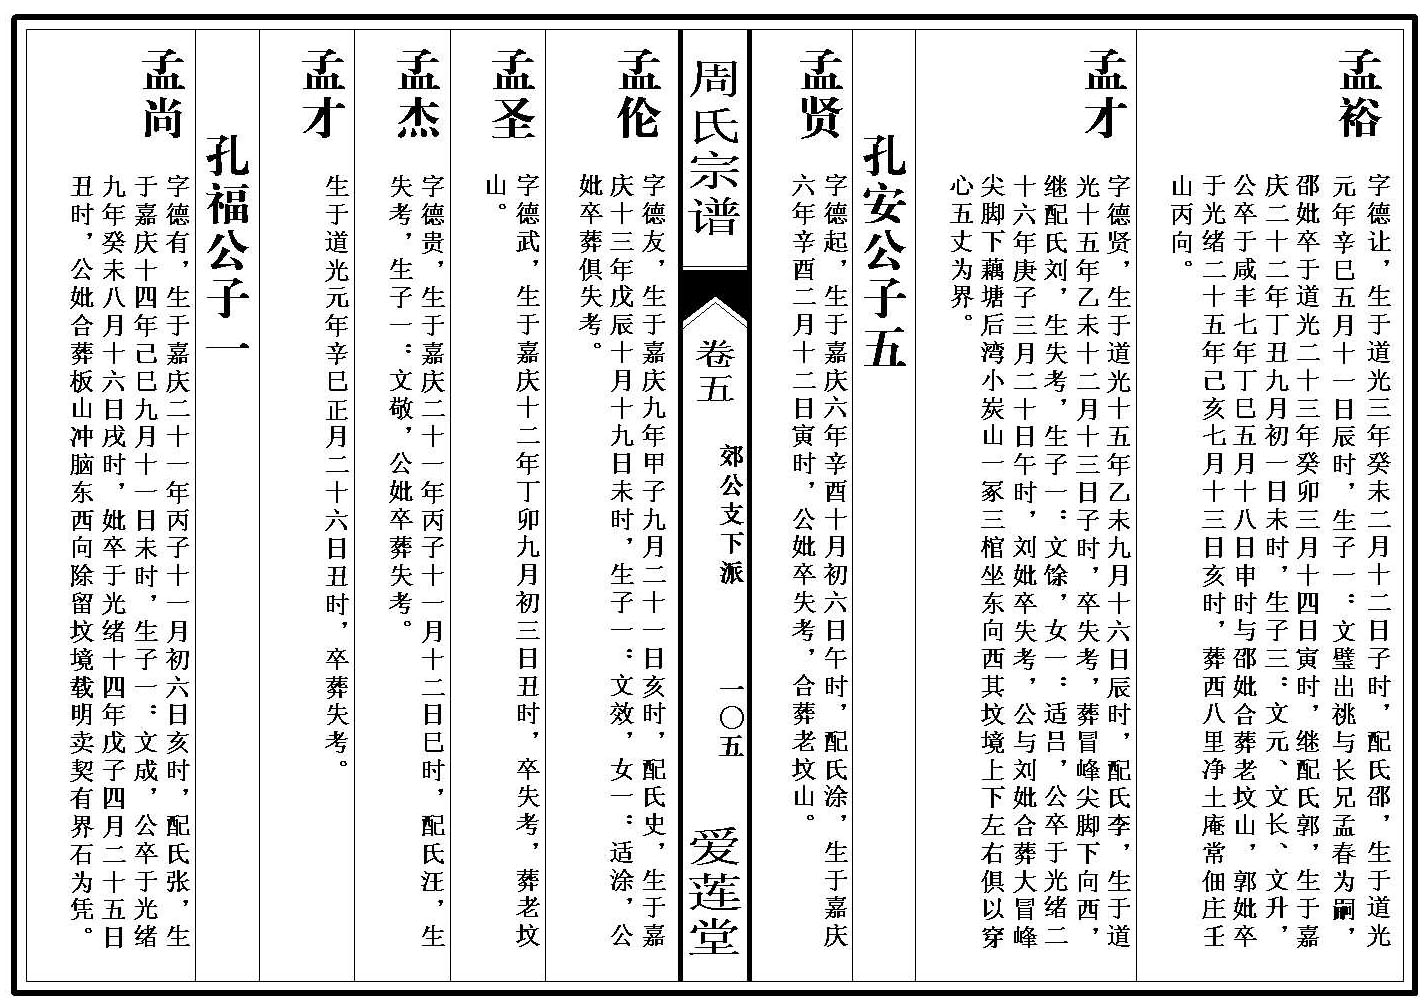 孟裕
字德让，生于道光三年癸未二月十二日子时，配氏邵，生于道光
元年辛巳五月十一日辰时，生子一：文璧出祧与长兄孟春为嗣，
邵妣卒于道光二十三年癸卯三月十四日寅时，继配氏郭，生于嘉
庆二十二年丁丑九月初一日未时，生子三：文元、文长、文升，
公卒于咸丰七年丁巳五月十八日申时与邵妣合葬老坟山，郭妣卒
于光绪二十五年己亥七月十三日亥时，葬西八里净土庵常佃庄壬
山丙向。
孟才
字德贤，生于道光十五年乙未九月十六日辰时，配氏李，生于道
光十五年乙未十二月十三日子时，卒失考，葬冒峰尖脚下向西，
继配氏刘，生失考，生子一：文馀，女一：适吕，公卒于光绪二
十六年庚子三月二十日午时，刘妣卒失考，公与刘妣合葬大冒峰
尖脚下藕塘后湾小炭山一冢三棺坐东向西其坟境上下左右俱以穿
心五丈为界。
孔安公子五
孟贤
字德起，生于嘉庆六年辛酉十月初六日午时，配氏涂，生于嘉庆
六年辛酉二月十二日寅时，公妣卒失考，合葬老坟山。
周氏宗谱
卷五
郊公支下派
一〇五
爱莲堂
孟伦
字德友，生于嘉庆九年甲子九月二十一日亥时，配氏史，生于嘉
庆十三年戊辰十月十九日未时，生子一：文效，女一：适涂，公
妣卒葬俱失考。
孟圣
字德武，生于嘉庆十二年丁卯九月初三日丑时，卒失考，葬老坟
山。
孟杰
字德贵，生于嘉庆二十一年丙子十一月十二日巳时，配氏汪，生
失考，生子一：文敬，公妣卒葬失考。
孟才
生于道光元年辛巳正月二十六日丑时，卒葬失考。
孔福公子一
孟尚
字德有，生于嘉庆二十一年丙子十一月初六日亥时，配氏张，生
于嘉庆十四年己巳九月十一日未时，生子一：文成，公卒于光绪
九年癸未八月十六日戌时，妣卒于光绪十四年戊子四月二十五日
丑时，公妣合葬板山冲脑东西向除留坟境载明卖契有界石为凭。